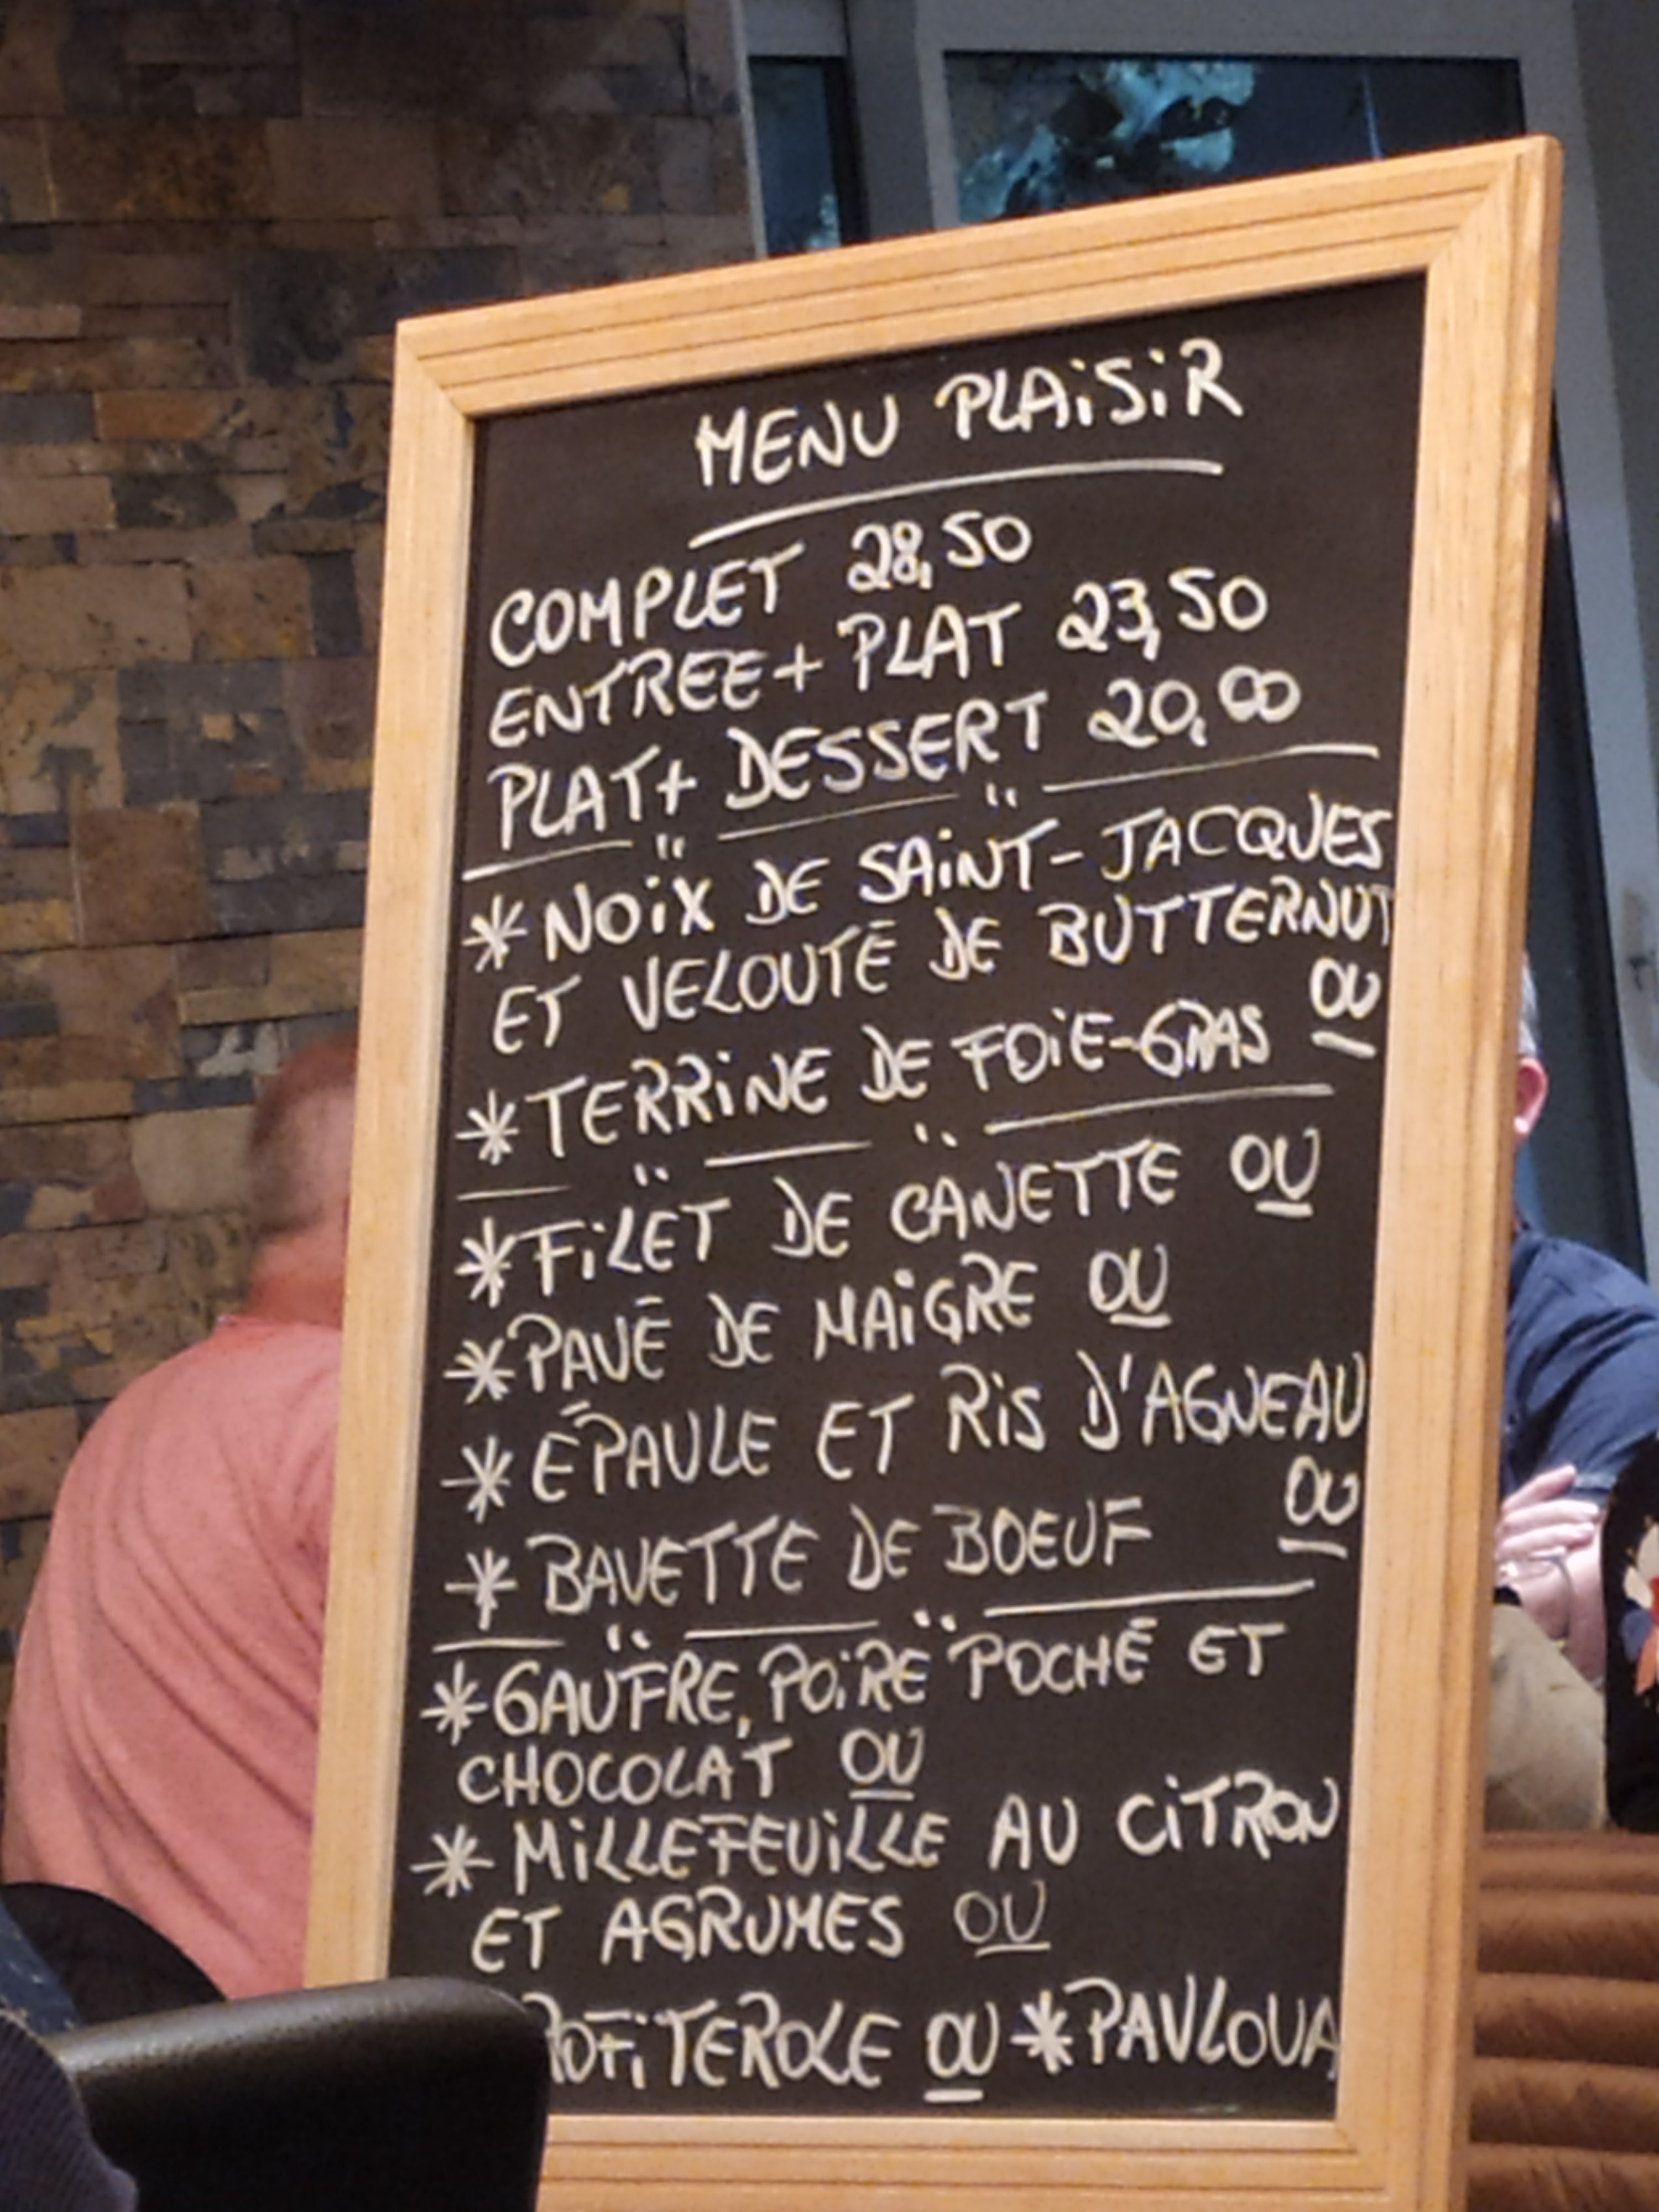 MENU PLAiSiR
COMPLET 28,50
ENTREE + PLAT 23,50
PLAT + DESSERT 20,00
* NOiX DE SAiNT-JACQUES
ET VELOUTÉ DE BUTTERNUT
OU
* TERRiNE DE FOiE-GRAS
* FiLET DE CANETTE OU
* PAVÉ DE MAiGRE OU
* ÉPAULE ET RiS D'AGNEAU
OU
* BAVETTE DE BOEUF
* GAUFRE, POiRE POCHÉ ET
CHOCOLAT OU
* MiLLEFEUiLLE AU CiTRON
ET AGRUMES OU
ROFiTEROLE OU * PAVLOVA